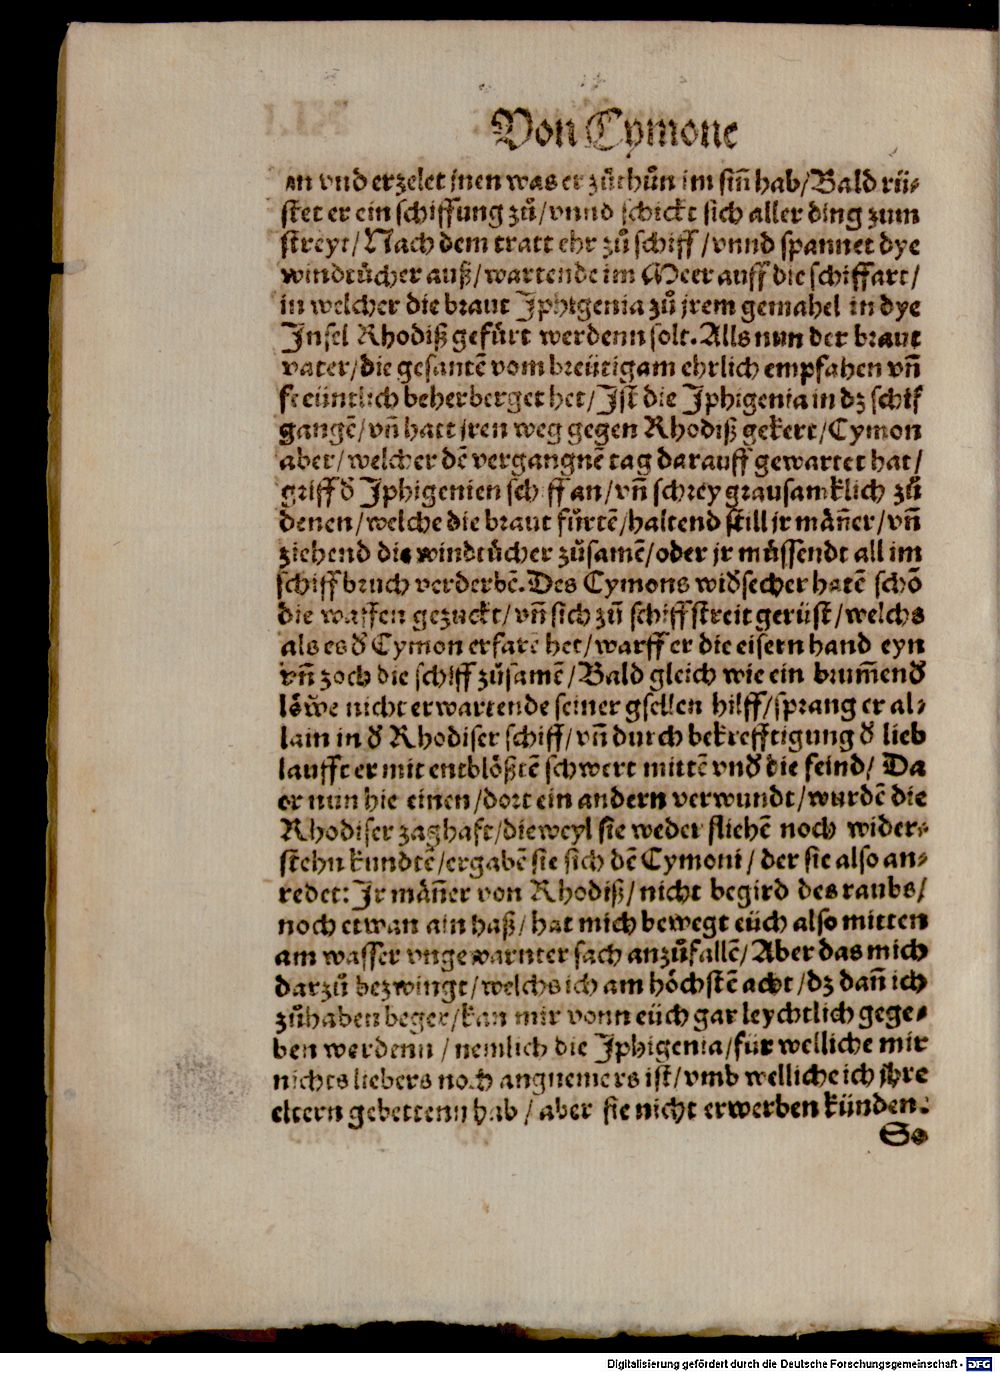 Von Cymone
an vnd erzelet jnen was er zůthůn im siñ hab/ Bald rü⸗
stet er ein schiffung zů/ vnnd schickt sich aller ding zum
streyt/ Nach dem tratt ehr zů schiff/ vnnd spannet dye
windtücher auß/ wartende im Meer auff die schiffart/
in welcher die braut Jphigenia zů jrem gemahel in dye
Jnsel Rhodiß gefürt werdenn solt. Alls nun der braut
vater/ die gesantẽ vom breütigam ehrlich empfahen vñ
freüntlich beherberget het/ Jst die Jphigenia in dz schif
gangẽ/ vñ hatt jren weg gegen Rhodiß gekert/ Cymon
aber/ welcher dẽ vergangnẽ tag darauff gewartet hat/
griff đ Jphigenien schiff an/ vñ schrey grausamklich zů
denen/ welche die braut fürtẽ/ haltend still jr mäñer/ vñ
ziehend die windtücher zůsamẽ/ oder jr müssendt all im
schiffbruch verderbẽ. Des Cymons widsecher hatẽ schõ
die waffen gezuckt/ vñ sich zů schiffstreit gerüst/ welchs
als es đ Cymon erfarẽ het/ warff er die eisern hand eyn
vñ zoch die schiff zůsamẽ/ Bald gleich wie ein brum̃enđ
löwe nicht erwartende seiner gsellen hilff/ sprang er al⸗
lain in đ Rhodiser schiff/ vñ durch bekrefftigung đ lieb
laufft er mit entblößtẽ schwert mittẽ vnđ die feind/ Da
er nun hie einen/ dort ein andern verwundt/ wurdẽ die
Rhodiser zaghaft/ dieweyl sie weder fliehẽ noch wider⸗
stehn kundtẽ/ ergabẽ sie sich dẽ Cymoni/ der sie also an⸗
redet: Jr mäñer von Rhodiß/ nicht begird des raubs/
noch etwan ain haß/ hat mich bewegt eüch also mitten
am wasser vngewarnter sach anzůfallẽ/ Aber das mich
darzů bezwingt/ welchs ich am höchstẽ acht/ dz dañ ich
zůhaben beger/ kan mir vonn eüch gar leychtlich gege⸗
ben werdenn/ nemlich die Jphigenia/ für welliche mir
nichts liebers noch angnemers ist/ vmb welliche ich jhre
eltern gebettenn hab/ aber sie nicht erwerben künden.
So
Digitalisierung gefördert durch die Deutsche Forschungsgemeinschaft - DFG